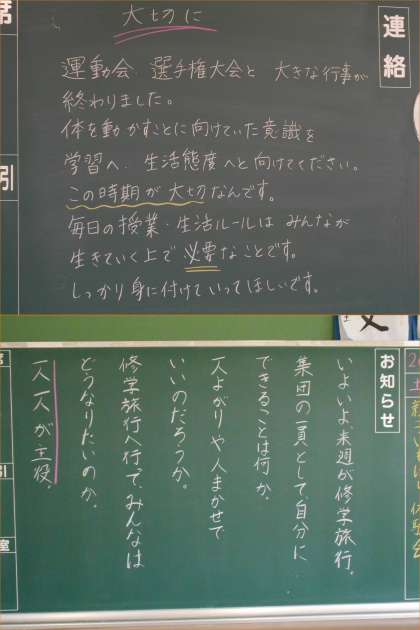 大切に
連絡
運動会、選手権大会と 大きな行事が
終わりました。
体を動かすことに向けていた意識を
学習へ、生活態度へと向けてください。
この時期が大切なんです。
毎日の授業・生活ルールは みんなが
生きていく上で必要なことです。
しっかり身に付けていってほしいです。
お知らせ
いよいよ、来週が修学旅行。
集団の一員として、自分に
できることは何か。
人よがりや人まかせで
いいのだろうか。
修学旅行へ行って、みんなは
どうなりたいのか。
一人一人が主役。